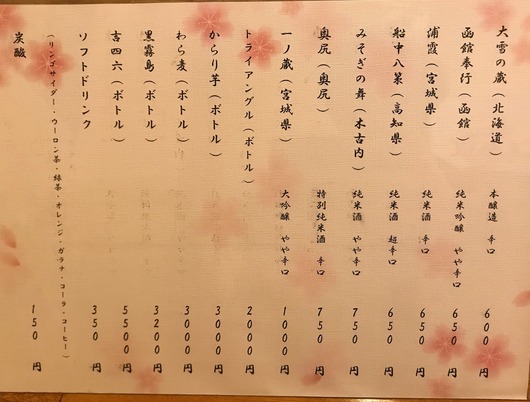 大雪の蔵（北海道） 本醸造 辛口 600円
函館奉行（函館） 純米吟醸 やや辛口 650円
浦霞（宮城県） 純米酒 辛口 650円
船中八策（高知県） 純米酒 超辛口 650円
みそぎの舞（木古内） 純米酒 やや辛口 750円
奥尻（奥尻） 特別純米酒 やや辛口 750円
一ノ蔵（宮城県） 大吟醸 やや辛口 1000円
トライアングル（ボトル） 2000円
からり芋（ボトル） 3000円
わら麦（ボトル） 3000円
黒霧島（ボトル） 3200円
吉四六（ボトル） 5500円
ソフトドリンク 350円
（リンゴサイダー・ウーロン茶・緑茶・オレンジ・ガラナ・コーラ・コーヒー）
炭酸 150円